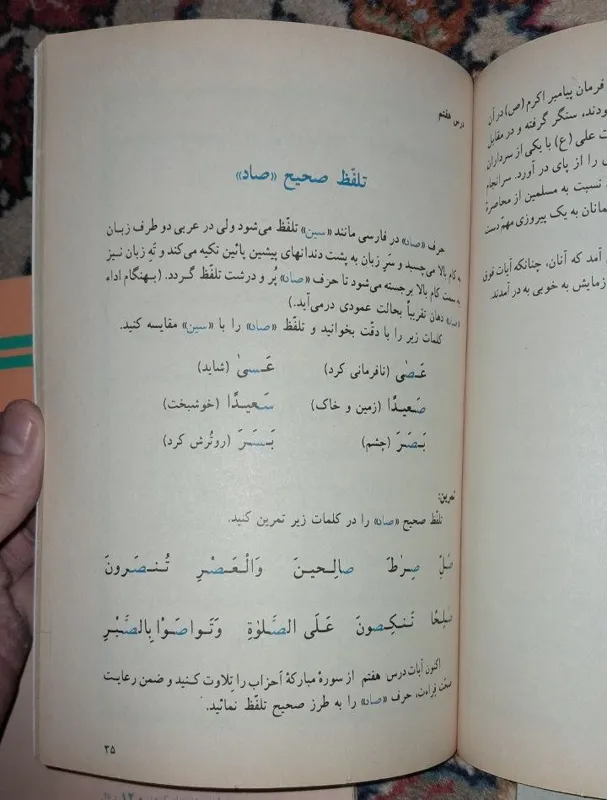 درس هفتم
تلفّظ صحیح «صاد»
حرف «صاد» در فارسی مانند «سین» تلفّظ می‌شود ولی در عربی دو طرف زبان
به کام بالا می‌چسبد و سَرِ زبان به پشت دندانهای پیشین پائین تکیه می‌کند و تَهِ زبان نیز
به سمت کام بالا برجسته می‌شود تا حرف «صاد» پُر و درشت تلفّظ گردد. (بهنگام اداء
«صاد» دهان تقریباً بحالت عمودی درمی‌آید.)
کلمات زیر را با دقّت بخوانید و تلفّظ «صاد» را با «سین» مقایسه کنید.
عَـصٰی (نافرمانی کرد) عَـسیٰ (شاید)
صَعیدًا (زمین و خاک) سَـعیدًا (خوشبخت)
بَـصَـرَ (چشم) بَـسَـرَ (روتُرش کرد)
تمرین:
تلفّظ صحیح «صاد» را در کلمات زیر تمرین کنید.
صِـرٰطَ صالِـحینَ وَالْـعَـصْـرِ تُـنـصَـرونَ
صٰلِحًا تَـنـکِـصونَ عَـلَی الـصَّـلوٰةِ وَتَـواصَـوْا بِالـصَّـبْـرِ
اکنون آیات درس هفتم از سورهٔ مبارکهٔ أحزاب را تِلاوت کنید و ضمن رعایت
صحّت قِراءت، حرف «صاد» را به طرز صحیح تلفّظ نمائید.
۳۵
فرمان پیامبر اکرم (ص) در آن
ودند، سنگر گرفته و در مقابل
ت علی (ع) با یکی از سرداران
را از پای در آورد. سرانجام
نسبت به مسلمین از محاصرهٔ
مانان به یک پیروزی مهمّ دست
آمد که آنان، چنانکه آیات فوق
زمایش به خوبی به در آمدند.